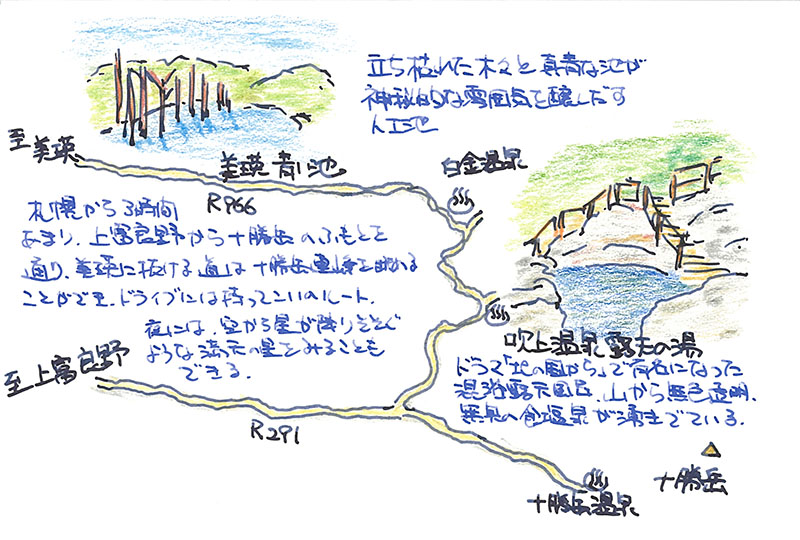 立ち枯れた木々と真青な池が
神秘的な雰囲気を醸しだす
人工池
至美瑛
美瑛 青い池
白金温泉
R966
札幌から3時間
あまり、上富良野から十勝岳のふもとを
通り、美瑛に抜ける道は十勝岳連峰を眺める
ことができ、ドライブには持ってこいのルート。
夜には、空から星が降りそそぐ
ような満天の星をみることも
できる。
吹上温泉 露天の湯
ドラマ「北の国から」で有名になった
混浴露天風呂。山から無色透明、
無臭の食塩泉が湧きでている。
至上富良野
R291
十勝岳
十勝岳温泉